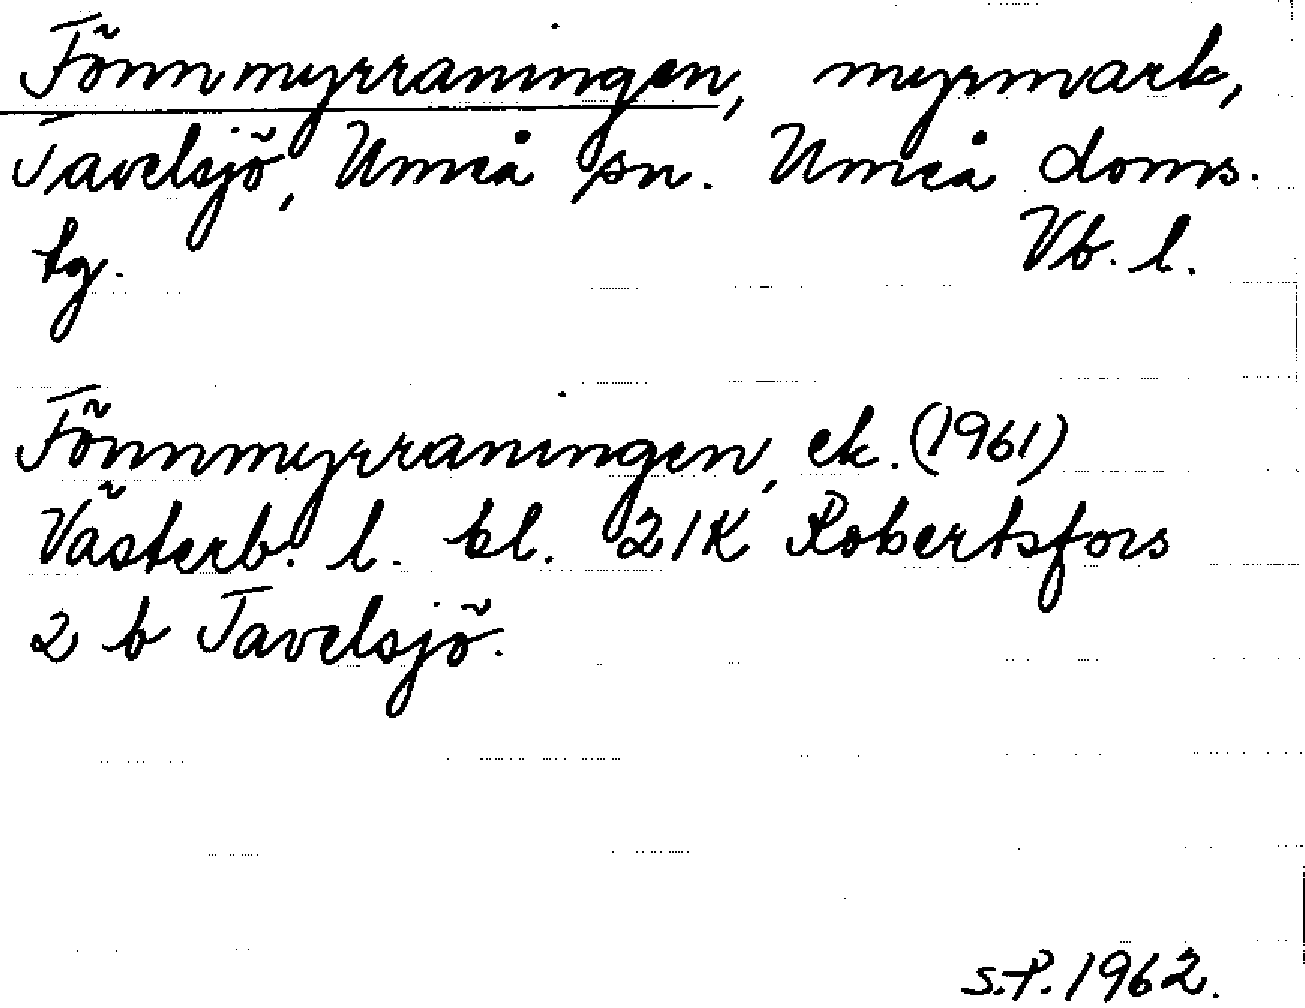 Tönnmyrraningen, myrmark,
Tavelsjö, Umeå sn. Umeå doms.
tg. Vb. l.
Tönnmyrraningen, ek. (1961)
Västerb. l. bl. 21K Robertsfors
2 b Tavelsjö.
S.P. 1962.